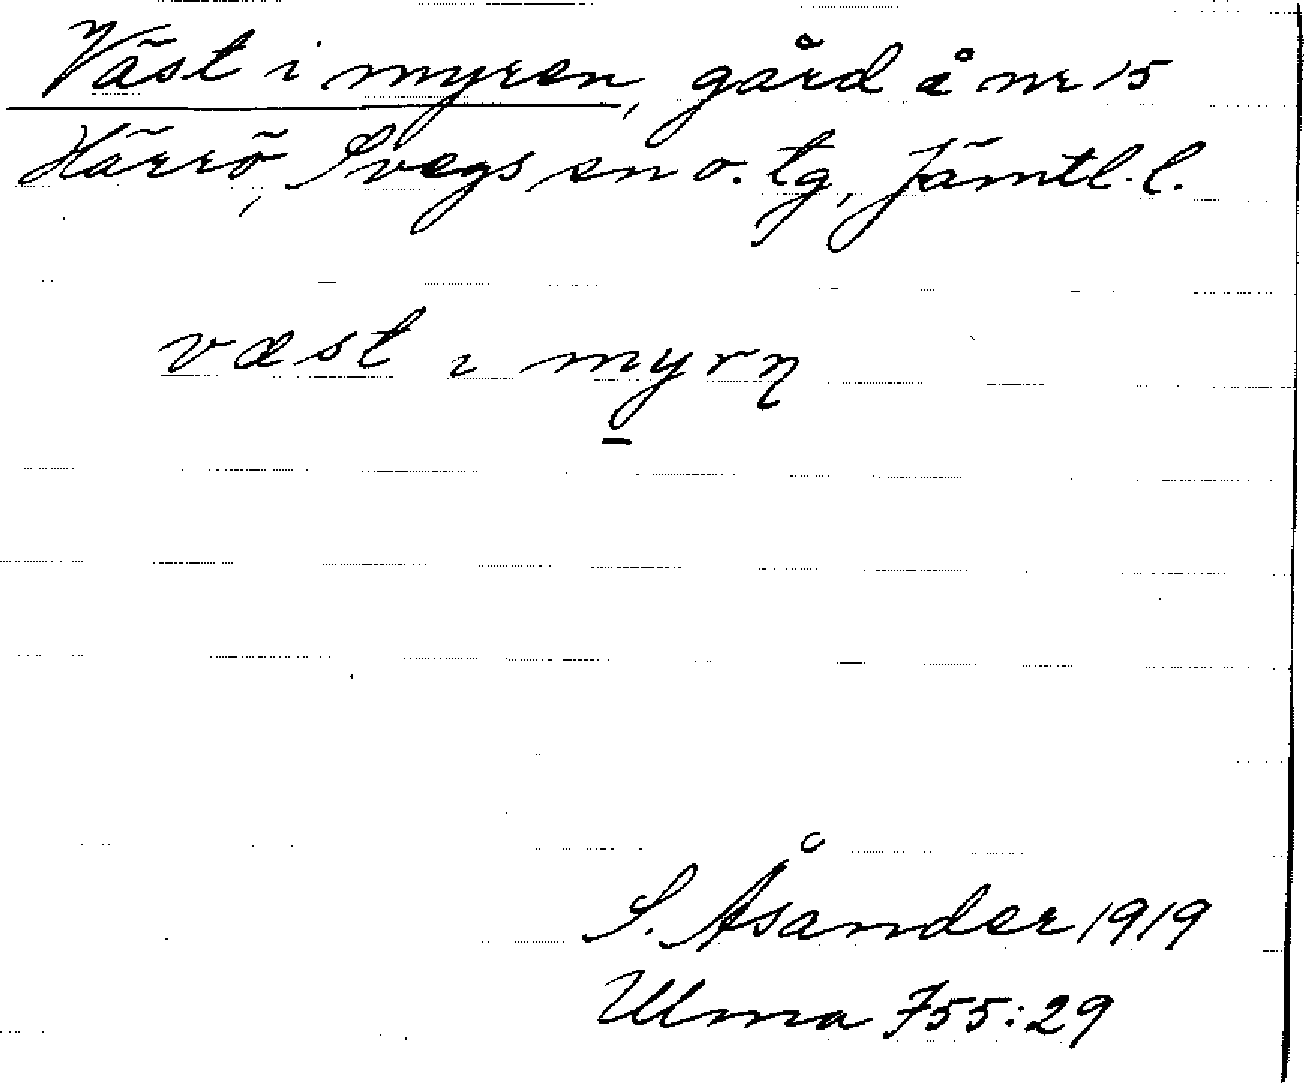 Väst i myren, gård å nr 15
Härrö, Svegs sn o. tg, Jämtl. l.
væst i myrn̥
S. Åsander 1919
Ulma 755:29